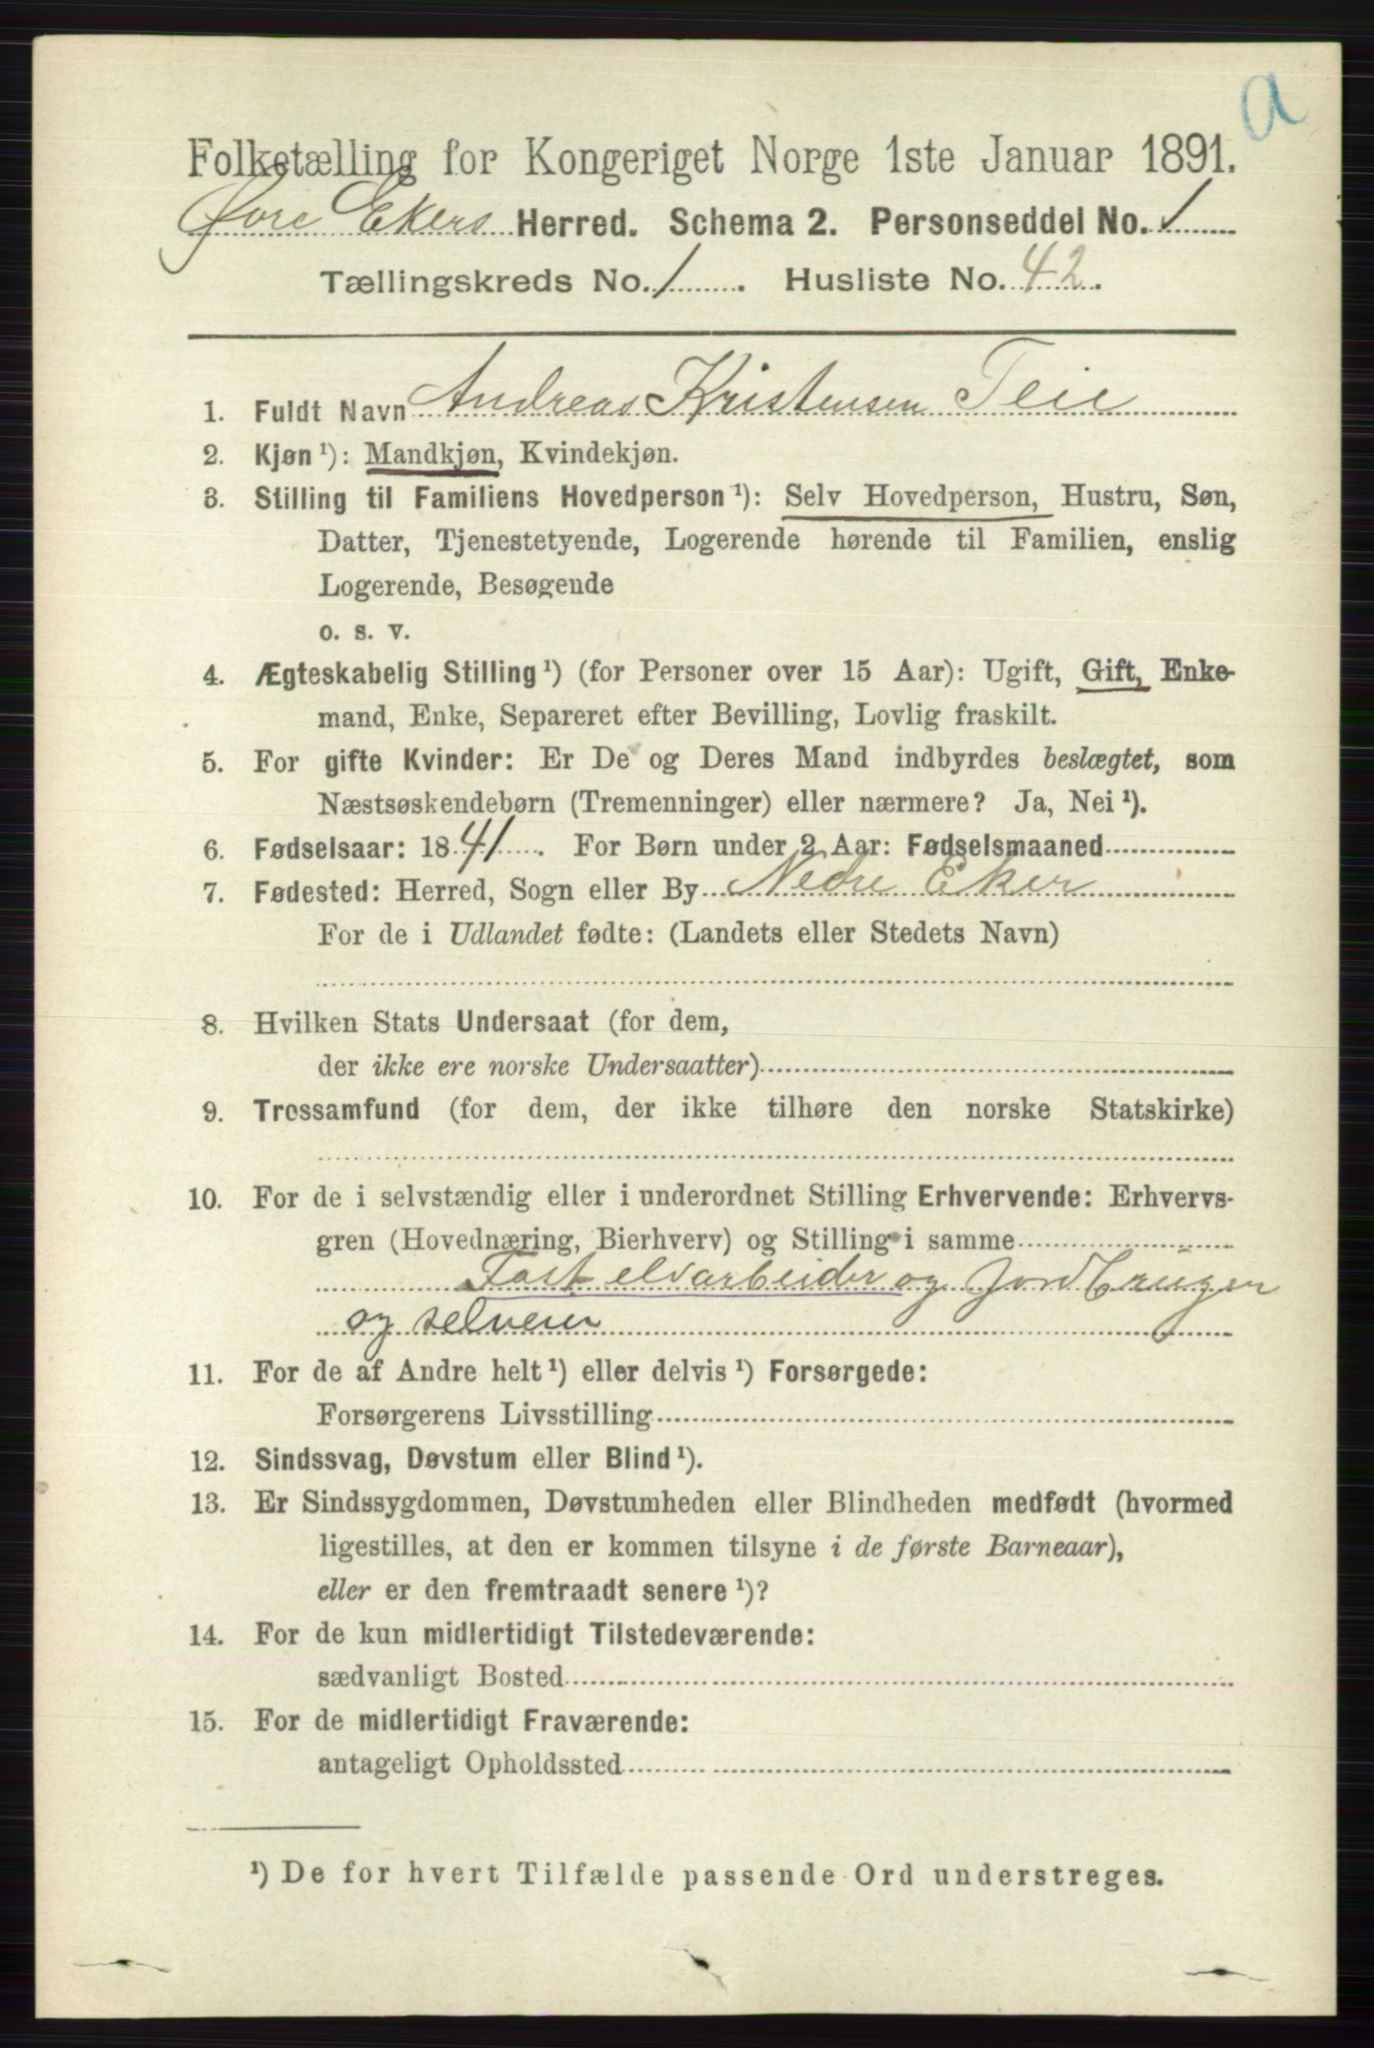 a
Folketælling for Kongeriget Norge 1ste Januar 1891.
Øvre Ekers Herred. Schema 2. Personseddel No. 1
Tællingskreds No. 1. Husliste No. 42.
1. Fuldt Navn Andreas Kristensen Teie
2. Kjøn ¹): Mandkjøn, Kvindekjøn.
3. Stilling til Familiens Hovedperson ¹): Selv Hovedperson, Hustru, Søn,
Datter, Tjenestetyende, Logerende hørende til Familien, enslig
Logerende, Besøgende
o. s. v.
4. Ægteskabelig Stilling ¹) (for Personer over 15 Aar): Ugift, Gift, Enke-
mand, Enke, Separeret efter Bevilling, Lovlig fraskilt.
5. For gifte Kvinder: Er De og Deres Mand indbyrdes beslægtet, som
Næstsøskendebørn (Tremenninger) eller nærmere? Ja, Nei ¹).
6. Fødselsaar: 1841. For Børn under 2 Aar: Fødselsmaaned
7. Fødested: Herred, Sogn eller By Nedre Eker
For de i Udlandet fødte: (Landets eller Stedets Navn)
8. Hvilken Stats Undersaat (for dem,
der ikke ere norske Undersaatter)
9. Trossamfund (for dem, der ikke tilhøre den norske Statskirke)
10. For de i selvstændig eller i underordnet Stilling Erhvervende: Erhvervs-
gren (Hovednæring, Bierhverv) og Stilling i samme
Fast elvarbeider og Jordbruger
og selveier
11. For de af Andre helt ¹) eller delvis ¹) Forsørgede:
Forsørgerens Livsstilling
12. Sindssvag, Døvstum eller Blind ¹).
13. Er Sindssygdommen, Døvstumheden eller Blindheden medfødt (hvormed
ligestilles, at den er kommen tilsyne i de første Barneaar),
eller er den fremtraadt senere ¹)?
14. For de kun midlertidigt Tilstedeværende:
sædvanligt Bosted
15. For de midlertidigt Fraværende:
antageligt Opholdssted
¹) De for hvert Tilfælde passende Ord understreges.